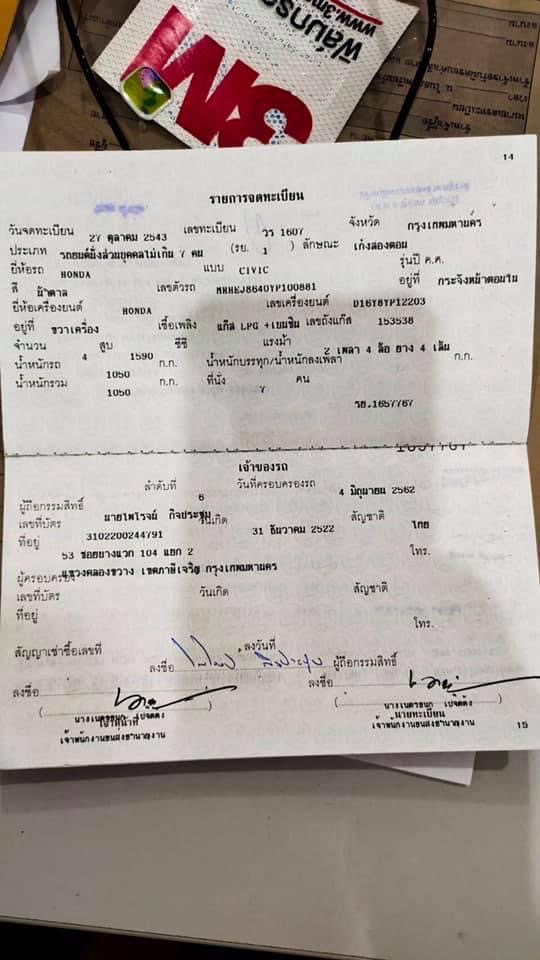 ฟิล์มกรอ
www.3m
3M
14
รายการจดทะเบียน
วันจดทะเบียน 27 ตุลาคม 2543 เลขทะเบียน วร 1607 จังหวัด กรุงเทพมหานคร
ประเภท รถยนต์นั่งส่วนบุคคลไม่เกิน 7 คน (รย. 1 ) ลักษณะ เก๋งสองตอน
ยี่ห้อรถ HONDA แบบ CIVIC รุ่นปี ค.ศ.
สี น้ำตาล เลขตัวรถ MRHEJ8640YP100881 อยู่ที่ กระจังหน้าตอนใน
ยี่ห้อเครื่องยนต์ HONDA เลขเครื่องยนต์ D16Y8YP12203
อยู่ที่ ขวาเครื่อง เชื้อเพลิง แก๊ส LPG +เบนซิน เลขถังแก๊ส 153538
จำนวน 4 สูบ 1590 ซีซี แรงม้า 2 เพลา 4 ล้อ ยาง 4 เส้น
น้ำหนักรถ 1050 ก.ก. น้ำหนักบรรทุก/น้ำหนักลงเพลา ก.ก.
น้ำหนักรวม 1050 ก.ก. ที่นั่ง 7 คน
รย.1657767
เจ้าของรถ
ลำดับที่ 6 วันที่ครอบครองรถ 4 มิถุนายน 2562
ผู้ถือกรรมสิทธิ์ นายไพโรจน์ กิจประชุม
เลขที่บัตร 3102200244791 วันเกิด 31 ธันวาคม 2522 สัญชาติ ไทย
ที่อยู่ 53 ซอยบางแวก 104 แยก 2 โทร.
แขวงคลองขวาง เขตภาษีเจริญ กรุงเทพมหานคร
ผู้ครอบครอง
เลขที่บัตร วันเกิด สัญชาติ
ที่อยู่
โทร.
สัญญาเช่าซื้อเลขที่ ลงวันที่
ลงชื่อ ผู้ถือกรรมสิทธิ์
ลงชื่อ ลงชื่อ
นายทะเบียน
เจ้าพนักงานขนส่งชำนาญงาน เจ้าพนักงานขนส่งชำนาญงาน
15